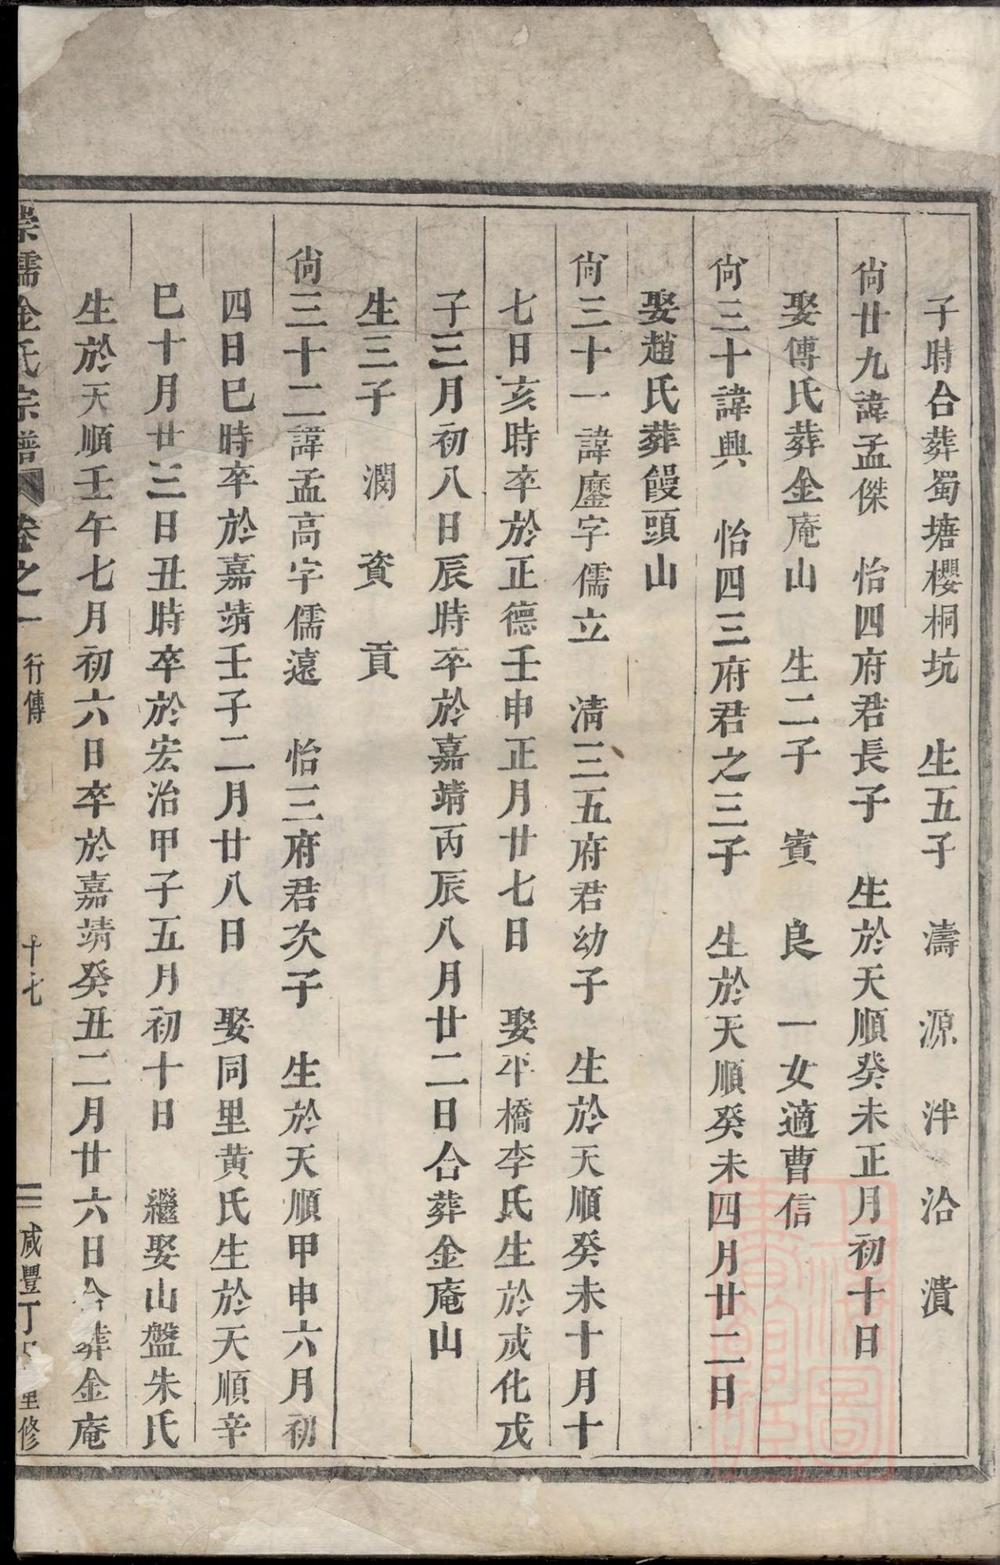 子時合葬蜀塘櫻桐坑　生五子　濤　源　泮　洽　濆
尙廿九諱孟傑　怡四府君長子　生於天順癸未正月初十日
娶傅氏葬金庵山　生二子　賓　良　一女適曹信
尙三十諱興　怡四三府君之三子　生於天順癸未四月廿二日
娶趙氏葬饅頭山
尙三十一諱塵字儒立　清三五府君幼子　生於天順癸未十月十
七日亥時卒於正德壬申正月廿七日　娶平橋李氏生於成化戊
子三月初八日辰時卒於嘉靖丙辰八月廿二日合葬金庵山
生三子　潤　資　貢
尙三十二諱孟高字儒遠　怡三府君次子　生於天順甲申六月初
四日巳時卒於嘉靖壬子二月廿八日　娶同里黃氏生於天順辛
巳十月廿三日丑時卒於宏治甲子五月初十日　繼娶山盤朱氏
生於天順壬午七月初六日卒於嘉靖癸丑二月廿六日合葬金庵
崇儒金氏宗譜　卷之一　行傳　十七　咸豐丁　重修